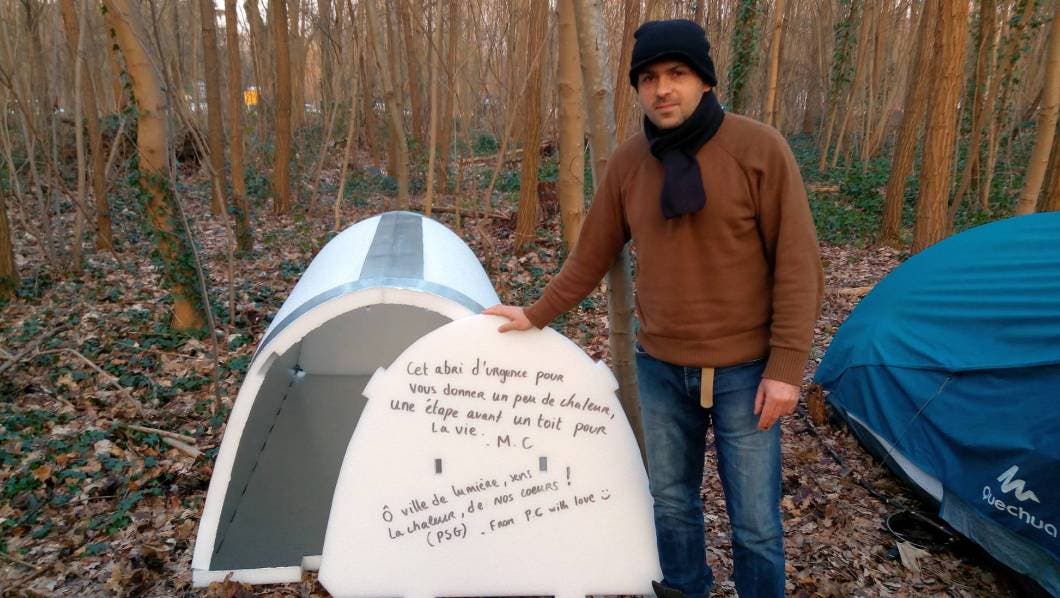 Cet abri d'urgence pour
vous donner un peu de chaleur,
une étape avant un toit pour
La vie. - M.C
Ô ville de lumière, sens
la chaleur, de nos coeurs !
(PSG) - From P.C with love
Quechua